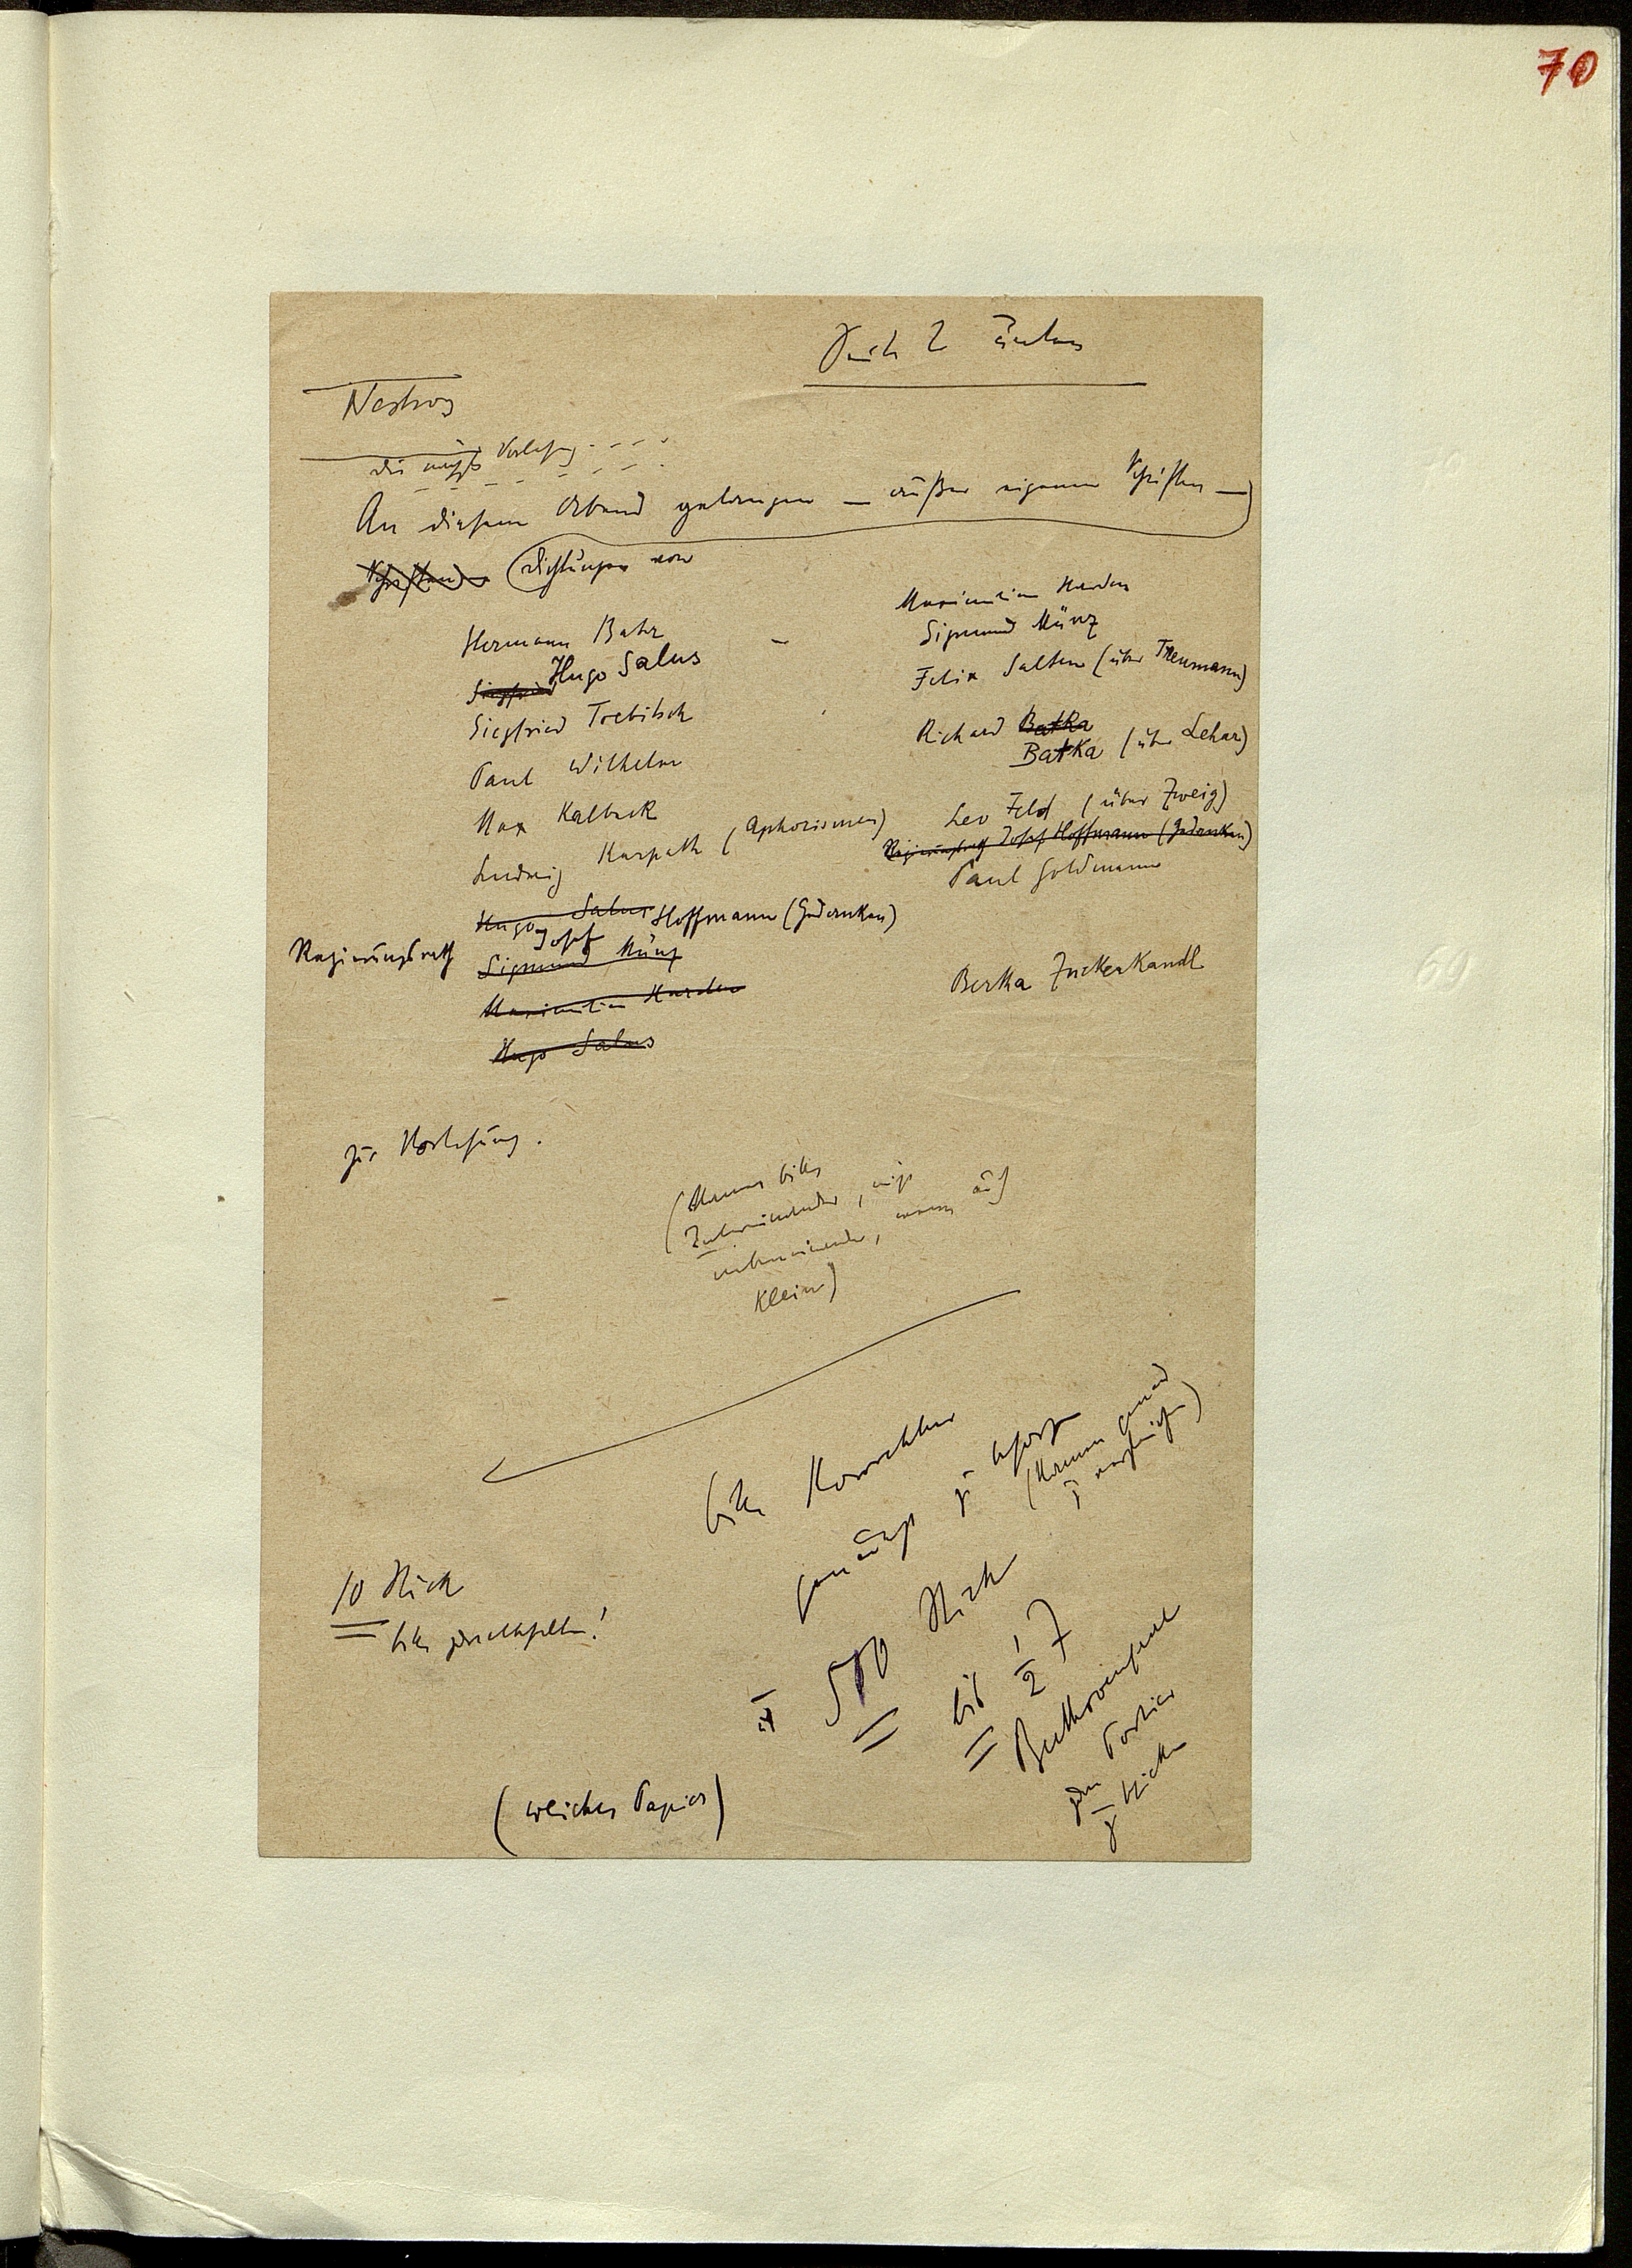 70
Nestroy
An diesem Abend gelangen — außer eigenen Schriften —
Schriften Dichtungen von
Hermann Bahr
Siegfried Hugo Salus
Siegfried Trebitsch
Paul Wilhelm
Max Kalbeck
Ludwig Karpath (Aphorismen)
Hugo Salus Hoffmann (Gedanken)
Regierungsrath Josef
Sigmund Münz
Maximilian Harden
Hugo Salus
Maximilian Harden
Sigmund Münz
Felix Salten (über Treumann)
Richard Batka
Batka (über Lehar)
Leo Feld (über Zweig)
Regierungsrath Josef Hoffmann (Gedanken)
Paul Goldmann
Berta Zuckerkandl
zur Vorlesung.
(Namen bitte
untereinander, nicht
nebeneinander, wenn auch
klein)
bitte Korrektur
genauest zu besorgen
(Namen genau
zu vergleichen)
10 Stück
bitte
500 Stück
bis 1/2 7
Beethovensaal
Portier
zu schicken
(weiches Papier)